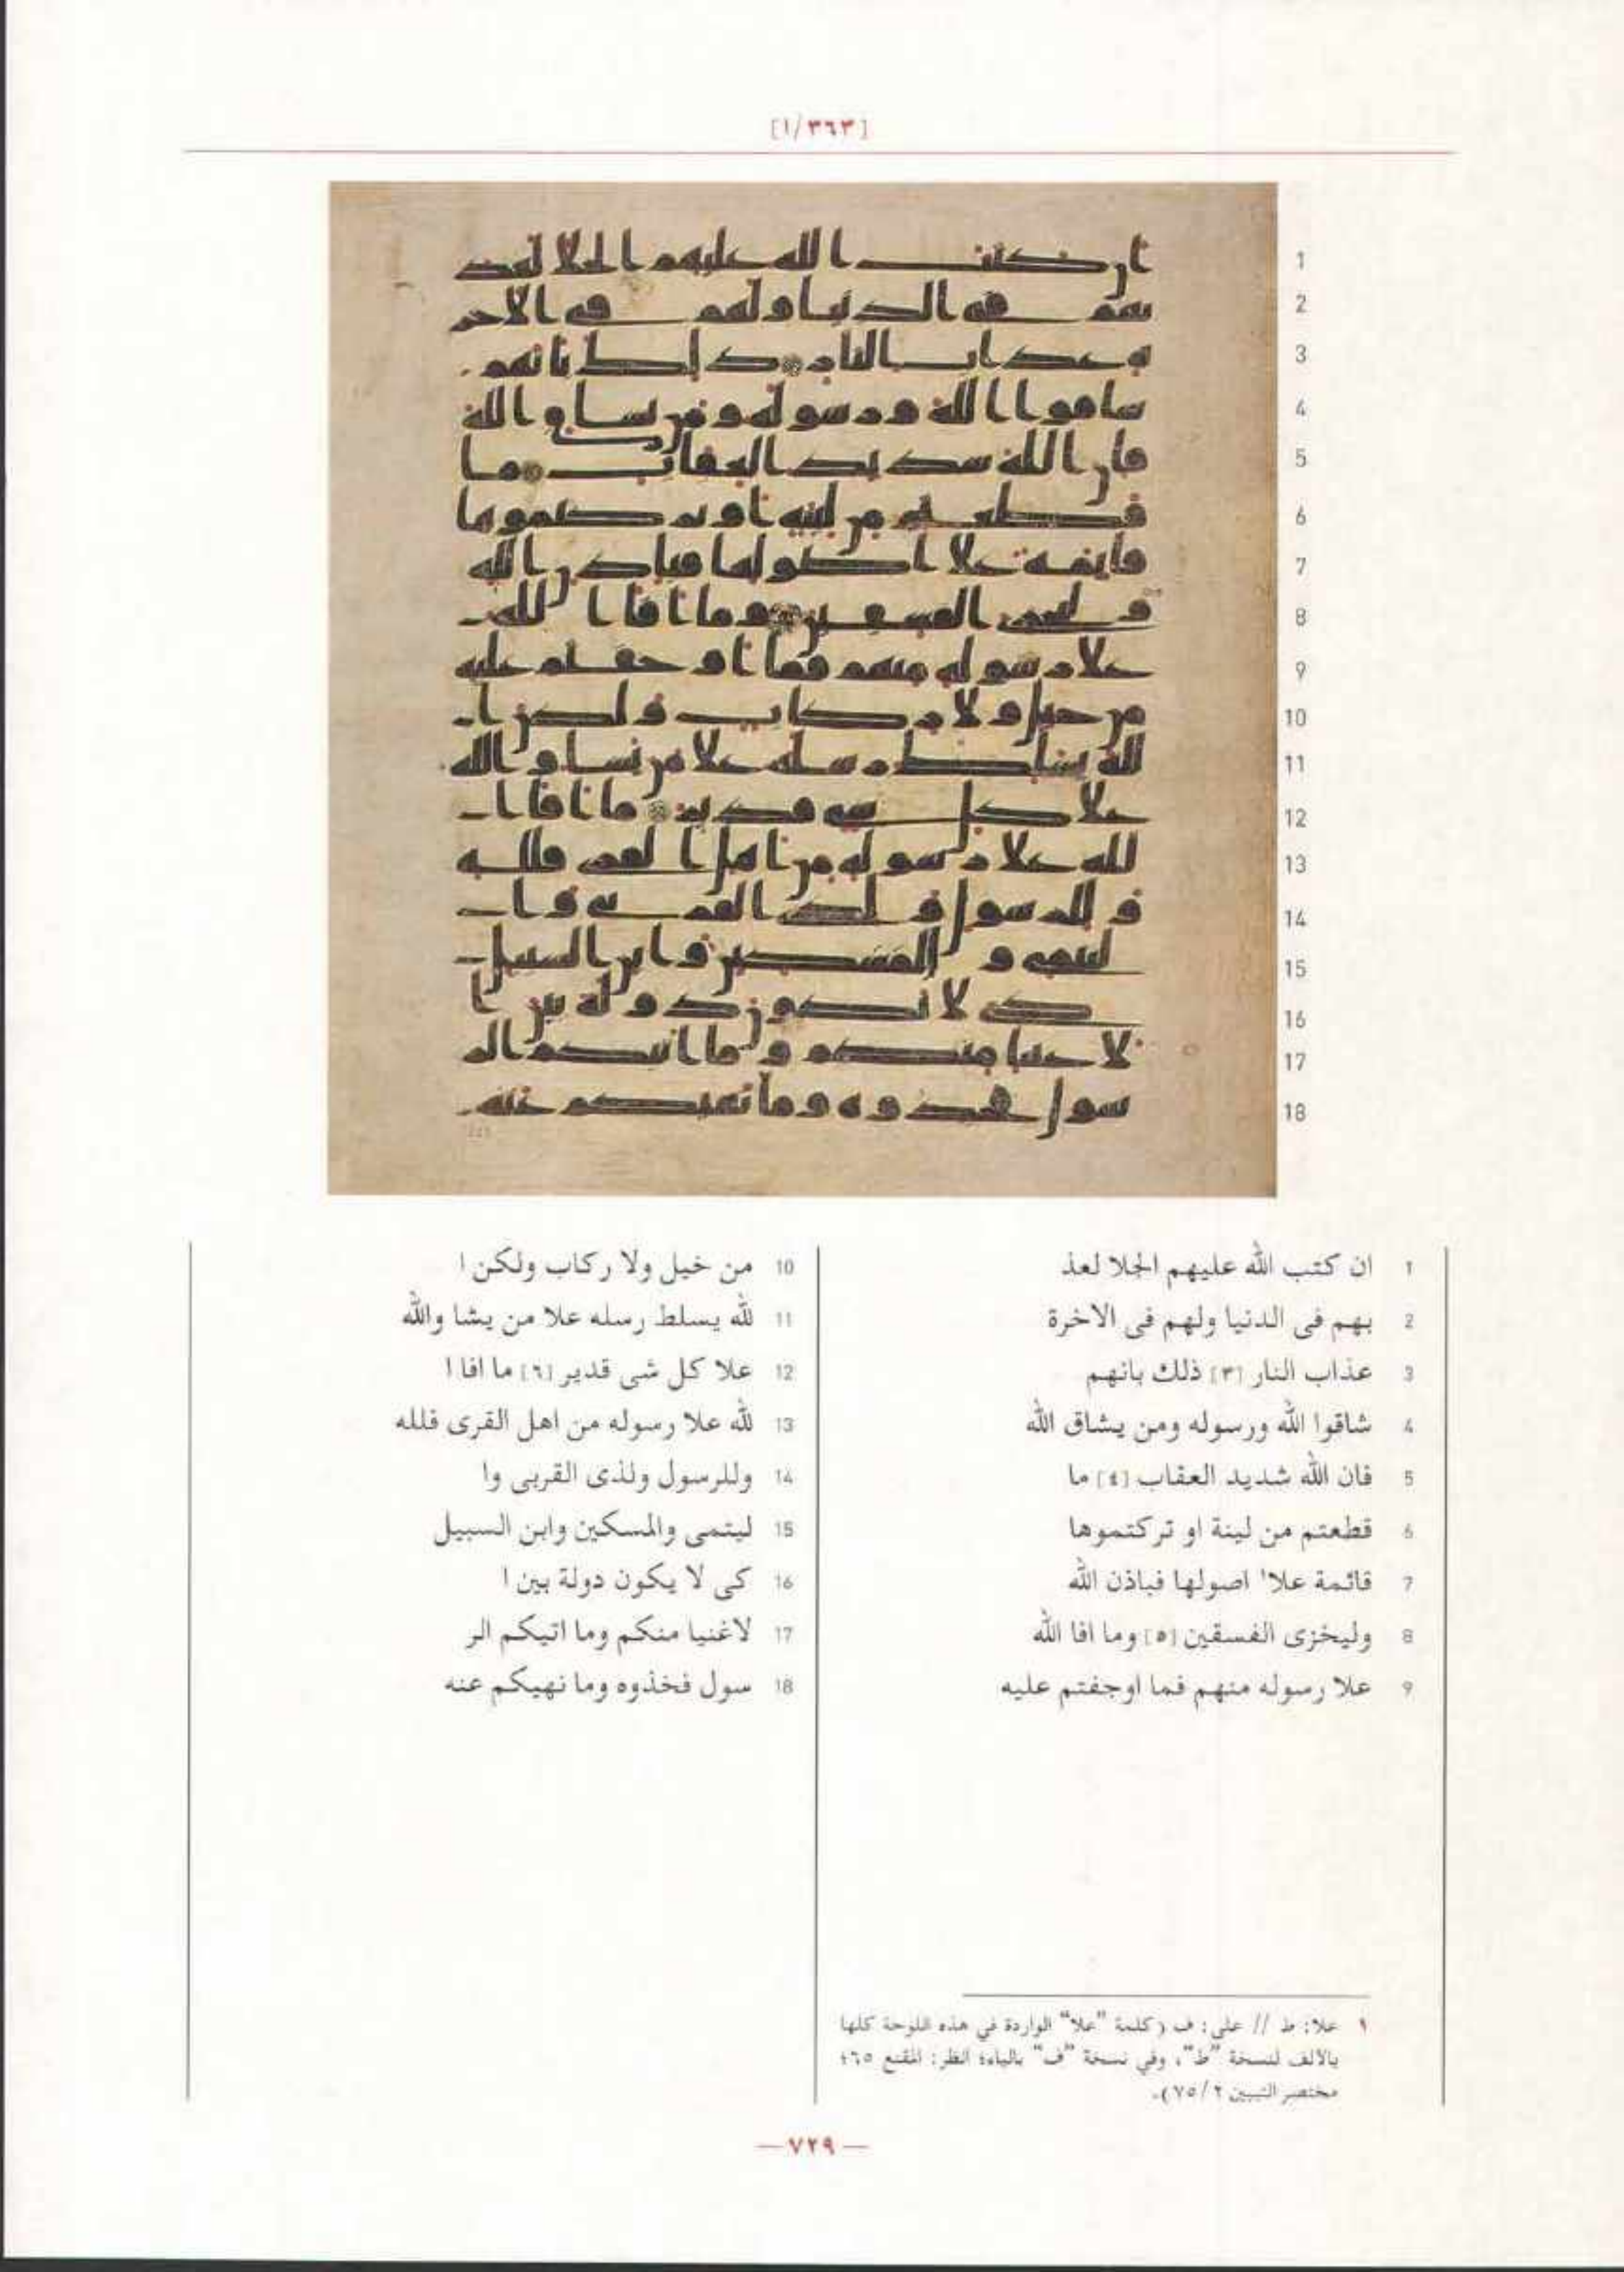 [٣٦٣/١]
1 ان كتب الله عليهم الجلا لعذ
2 بهم فى الدنيا ولهم فى الاخرة
3 عذاب النار [٣] ذلك بانهم
4 شاقوا الله ورسوله ومن يشاق الله
5 فان الله شديد العقاب [٤] ما
6 قطعتم من لينة او تركتموها
7 قائمة علا١ اصولها فباذن الله
8 وليخزى الفسقين [٥] وما افا الله
9 علا رسوله منهم فما اوجفتم عليه
10 من خيل ولا ركاب ولكن ا
11 لله يسلط رسله علا من يشا والله
12 علا كل شى قدير [٦] ما افا ا
13 لله علا رسوله من اهل القرى فلله
14 وللرسول ولذى القربى وا
15 ليتمى والمسكين وابن السبيل
16 كى لا يكون دولة بين ا
17 لاغنيا منكم وما اتيكم الر
18 سول فخذوه وما نهيكم عنه
١ علا: ط // على: ف (كلمة "علا" الواردة في هذه اللوحة كلها
بالألف لنسخة "ط"، وفي نسخة "ف" بالياء؛ انظر: المقنع ٦٥؛
مختصر التبيين ٧٥/٢).
— ٧٢٩ —